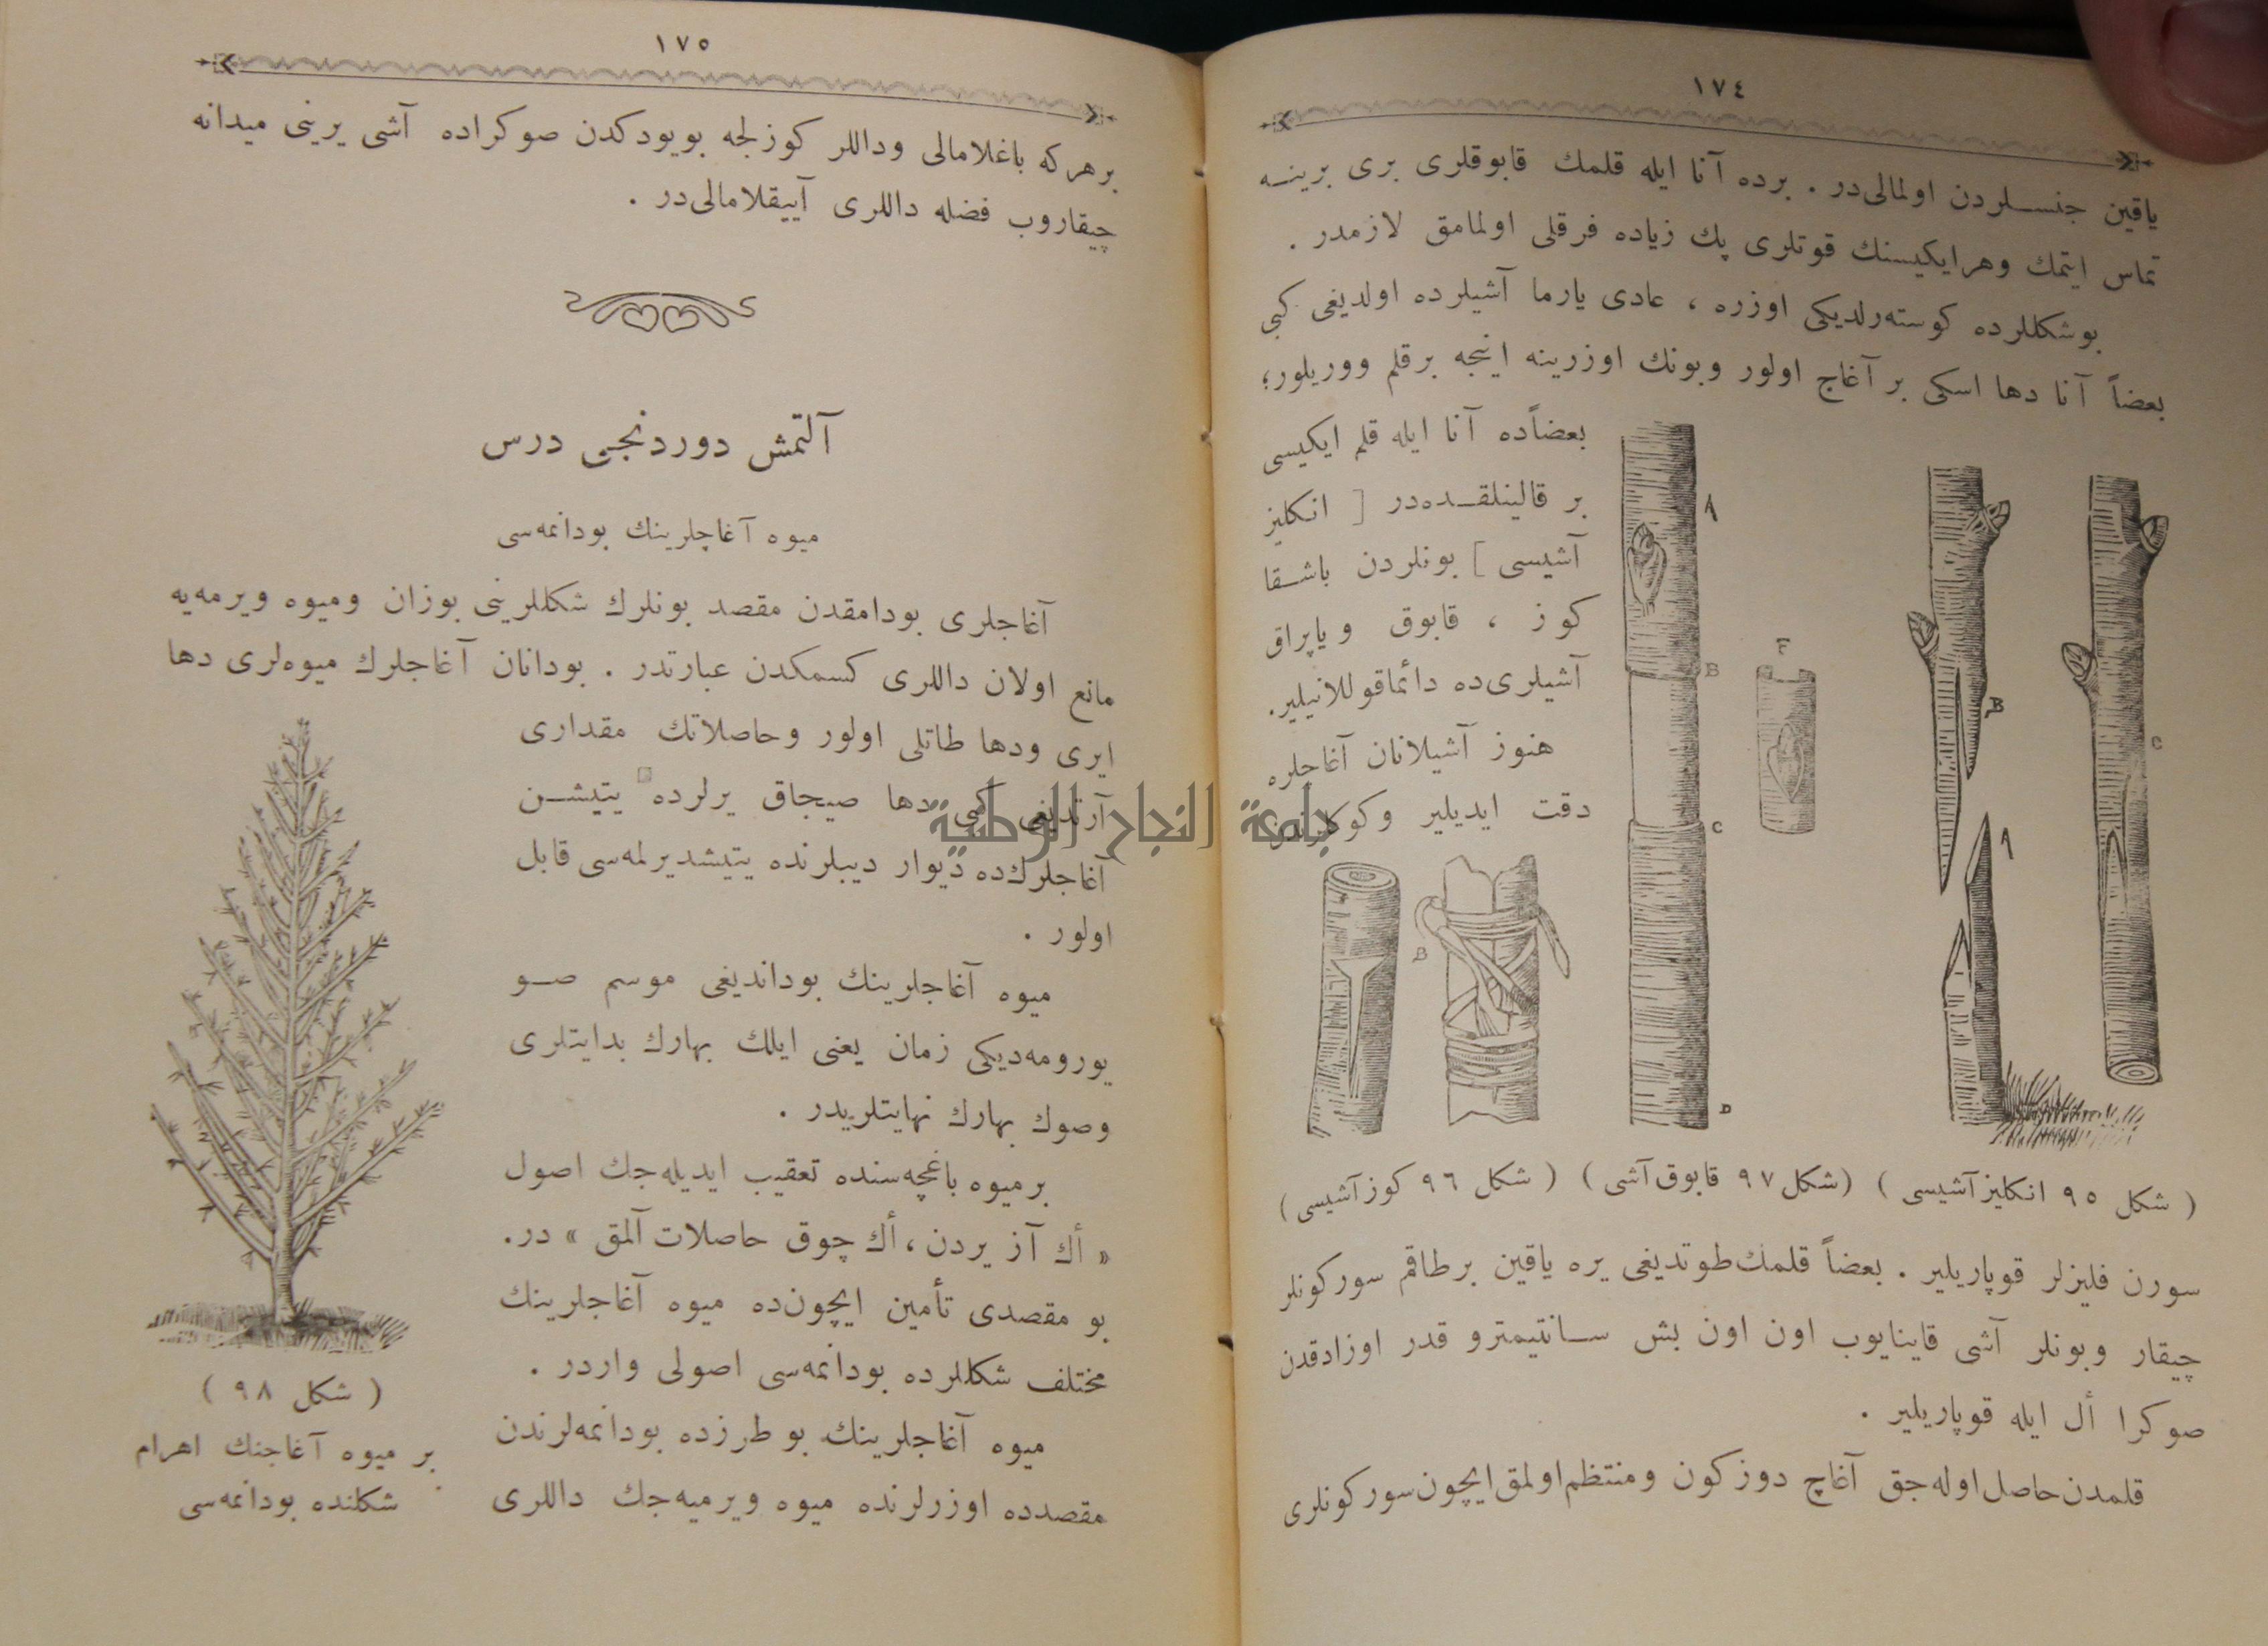 ١٧٤
ياقين جنســلردن اولمالى‌در . برده آنا ايله قلمك قابوقلرى برى برينــه
تماس ايتمك وهرايكيسنك قوتلرى پك زياده فرقلى اولمامق لازمدر .
بوشكللرده كوسته‌رلديكى اوزره ، عادى يارما آشيلرده اولديغى كبى
بعضاً آنا دها اسكى بر آغاج اولور وبونك اوزرينه اينجه برقلم ووريلور؛
بعضاًده آنا ايله قلم ايكيسى
بر قالينلقــده‌در [ انكليز
آشيسى ] بونلردن باشــقا
كوز ، قابوق وياپراق
آشيلرى‌ده دائماقوللانيلير.
هنوز آشيلانان آغاجلره
دقت ايديلير وكوكلرندن
A
B
C
D
F
B
A
C
B
( شكل ٩٥ انكليزآشيسى ) (شكل ٩٧ قابوق‌آشى ) ( شكل ٩٦ كوزآشيسى )
سورن فليزلر قوپاريلير . بعضاً قلمك‌طوتديغى يره ياقين برطاقم سوركونلر
چيقار وبونلر آشى قاينايوب اون اون بش ســانتيمترو قدر اوزادقدن
صوكرا أل ايله قوپاريلير .
قلمدن‌حاصل‌اوله‌جق آغاج دوزكون ومنتظم‌اولمق‌ايچون‌سوركونلرى
١٧٥
برهركه باغلامالى وداللر كوزلجه بويودكدن صوكراده آشى يرينى ميدانه
چيقاروب فضله داللرى آييقلامالى‌در .
آلتمش دوردنجى درس
ميوه آغاچلرينك بودانمه‌سى
آغاجلرى بودامقدن مقصد بونلرك شكللرينى بوزان وميوه ويرمه‌يه
مانع اولان داللرى كسمكدن عبارتدر . بودانان آغاجلرك ميوه‌لرى دها
ايرى ودها طاتلى اولور وحاصلاتك مقدارى
آرتديغى كبى دها صيجاق يرلرده يتيشــن
آغاجلرك‌ده ديوار ديبلرنده يتيشديرلمه‌سى قابل
اولور .
ميوه آغاجلرينك بودانديغى موسم صــو
يورومه‌ديكى زمان يعنى ايلك بهارك بدايتلرى
وصوك بهارك نهايتلريدر .
برميوه باغچه‌سنده تعقيب ايديله‌جك اصول
« أك آز يردن ، أك چوق حاصلات آلمق » در.
بو مقصدى تأمين ايچون‌ده ميوه آغاجلرينك
مختلف شكللرده بودانمه‌سى اصولى واردر .
ميوه آغاجلرينك بو طرزده بودانمه‌لرندن
مقصدده اوزرلرنده ميوه ويرميه‌جك داللرى
( شكل ٩٨ )
بر ميوه آغاجنك اهرام
شكلنده بودانمه‌سى
جامعة النجاح الوطنية